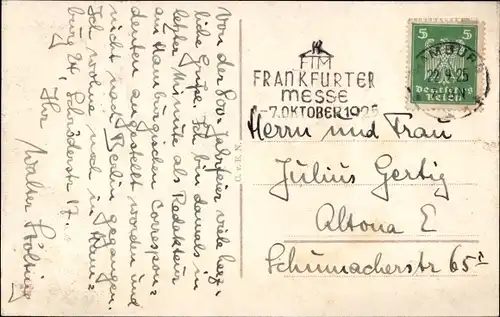 Von der 800 Jahrfeier viele herz-
liche Grüße. Ich bin damals in
letzter Minute als Redakteur
am Hamburgischen Correspon=
denten angestellt worden und
nicht nach Berlin gegangen.
Ich wohne noch in Ham=
burg 24, Schröderstr 17.
Ihr Walter
HAMBURG
22.9.25
5 5
Deutsches
Reich
FRANKFURTER
MESSE
-7.OKTOBER 1925
Herrn und Frau
Julius Gertig
Altona E
Schumacherstr 65 I